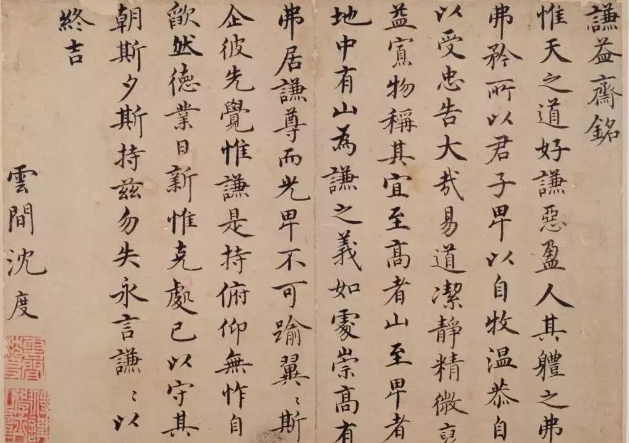 謙益齋銘
惟天之道好謙惡盈人其軆之弗
弗矜所以君子卑以自牧溫恭自
以受忠告大哉易道潔靜精微
益寡物稱其宜至高者山至卑者
地中有山為謙之義如處崇高有
弗居謙尊而光卑不可踰翼〻斯
企彼先覺惟謙是持俯仰無怍自
欿然德業日新惟克處已以守其
朝斯夕斯持兹勿失永言謙〻以
終吉
雲間沈度